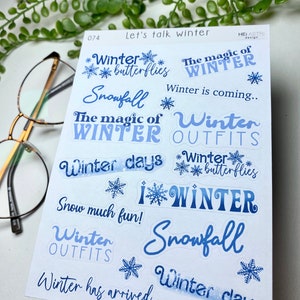 074
Let's talk winter
design
Winter
butterflies
The magic of
WINTER
Snowfall
Winter is coming..
The magic of
WINTER
Winter
OUTFITS
Winter days
Winter
butterflies
Snow much fun!
I WINTER
Winter
OUTFITS
Snowfall
Winter has arrived
Winter days